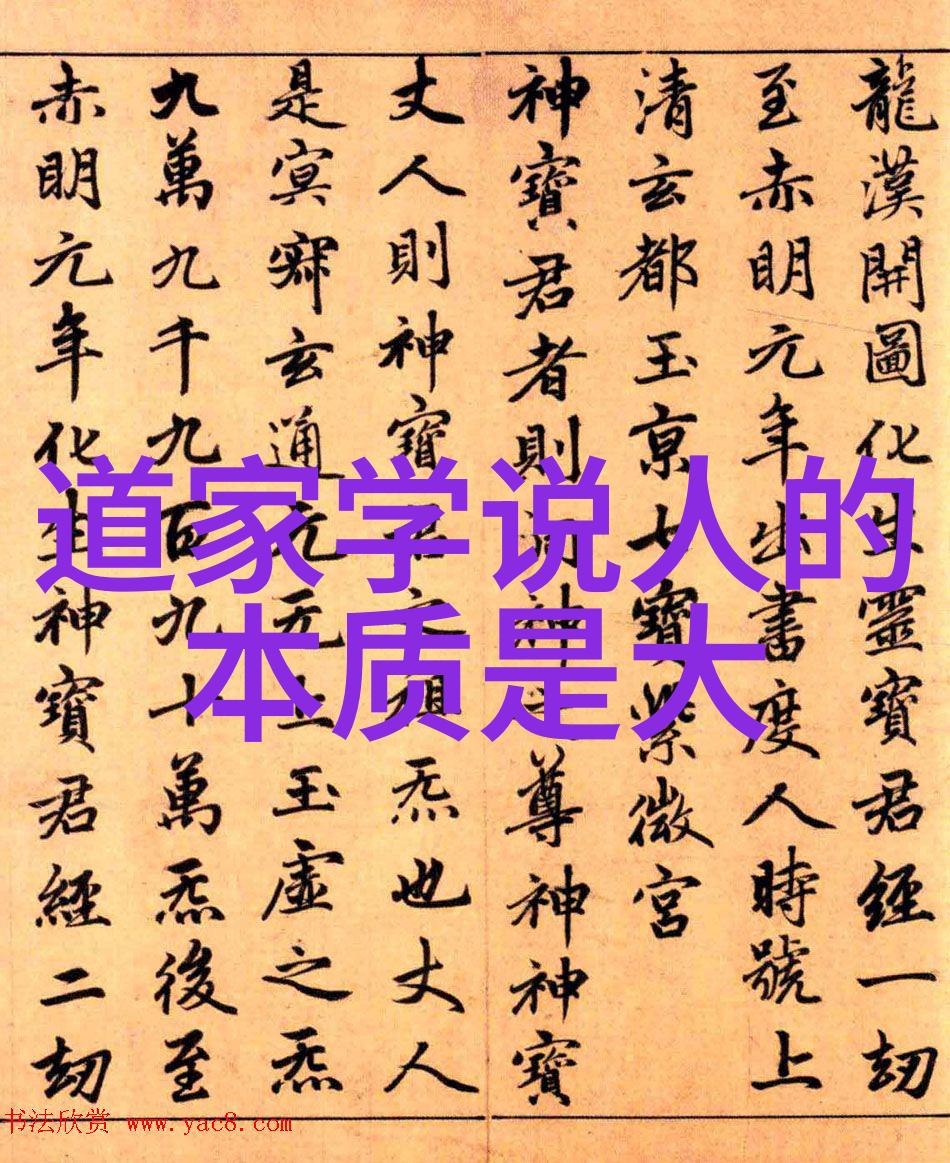 龍漢開圖化生靈寶君經一劫
至赤明元年出書度人時號上
清玄都玉京七寶紫微宮
神寶君者則洞神之尊神神寶
丈人則神寶君之祖炁也丈人
是冥寂玄通元无上玉虛之炁
九萬九千九百九十萬炁後至
赤明元年化生神寶君經二劫
道家学说人的
本质是大
书法欣赏 www.yac8.com